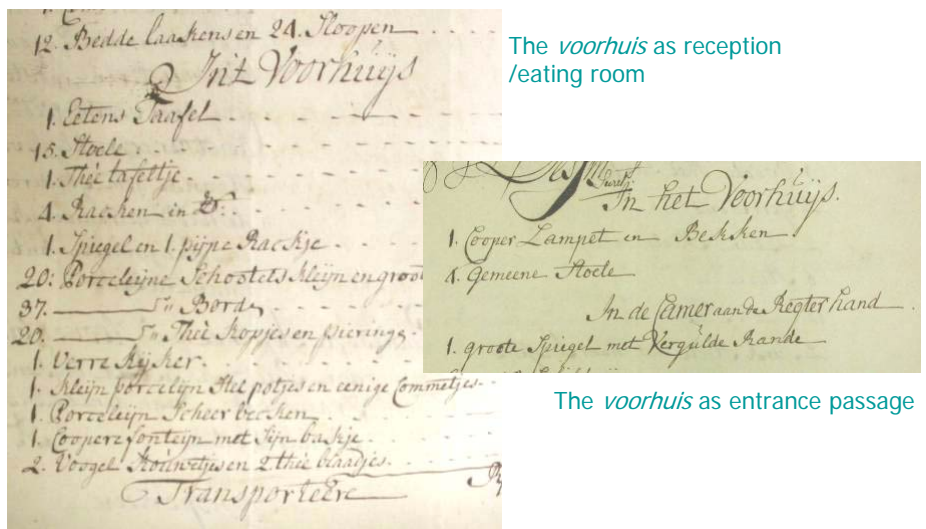 12. Bedde laakens en 24. Sloopen
In't Voorhuijs
1. Eetens Taafel
15. Stoele
1. Theé tafeltje
4. Racken in
1. Spiegel en 1. pijpe Rackje
20: Porceleijne Schootels kleijn en groot
37. Bords
20. Theé kopjes en pierings
1. Verre kijker
1. kleijn porcelijn thee potjes en eenige Commetjes
1. Porceleijn Scheer becken
1. Coopere fonteijn met Sijn bakje
2. Voogel kouwetjes en 2 thée blaadjes
Transporteere
The voorhuis as reception
/eating room
In het Voorhuijs.
1. Cooper Lampet en Bekken
4. Gemeene Stoele
In de Camer aan de Regter hand
1. groote Spiegel met Vergulde Rande
The voorhuis as entrance passage